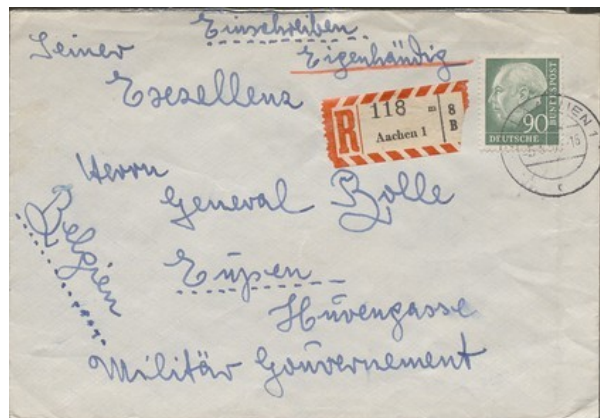 Einschreiben
Eigenhändig
Seiner
Exzellenz
R
118 m
Aachen 1
8
B
90
DEUTSCHE
BUNDESPOST
Herrn
General Bolle
Belgien
Eupen
Hüvengasse
Militär Gouvernement